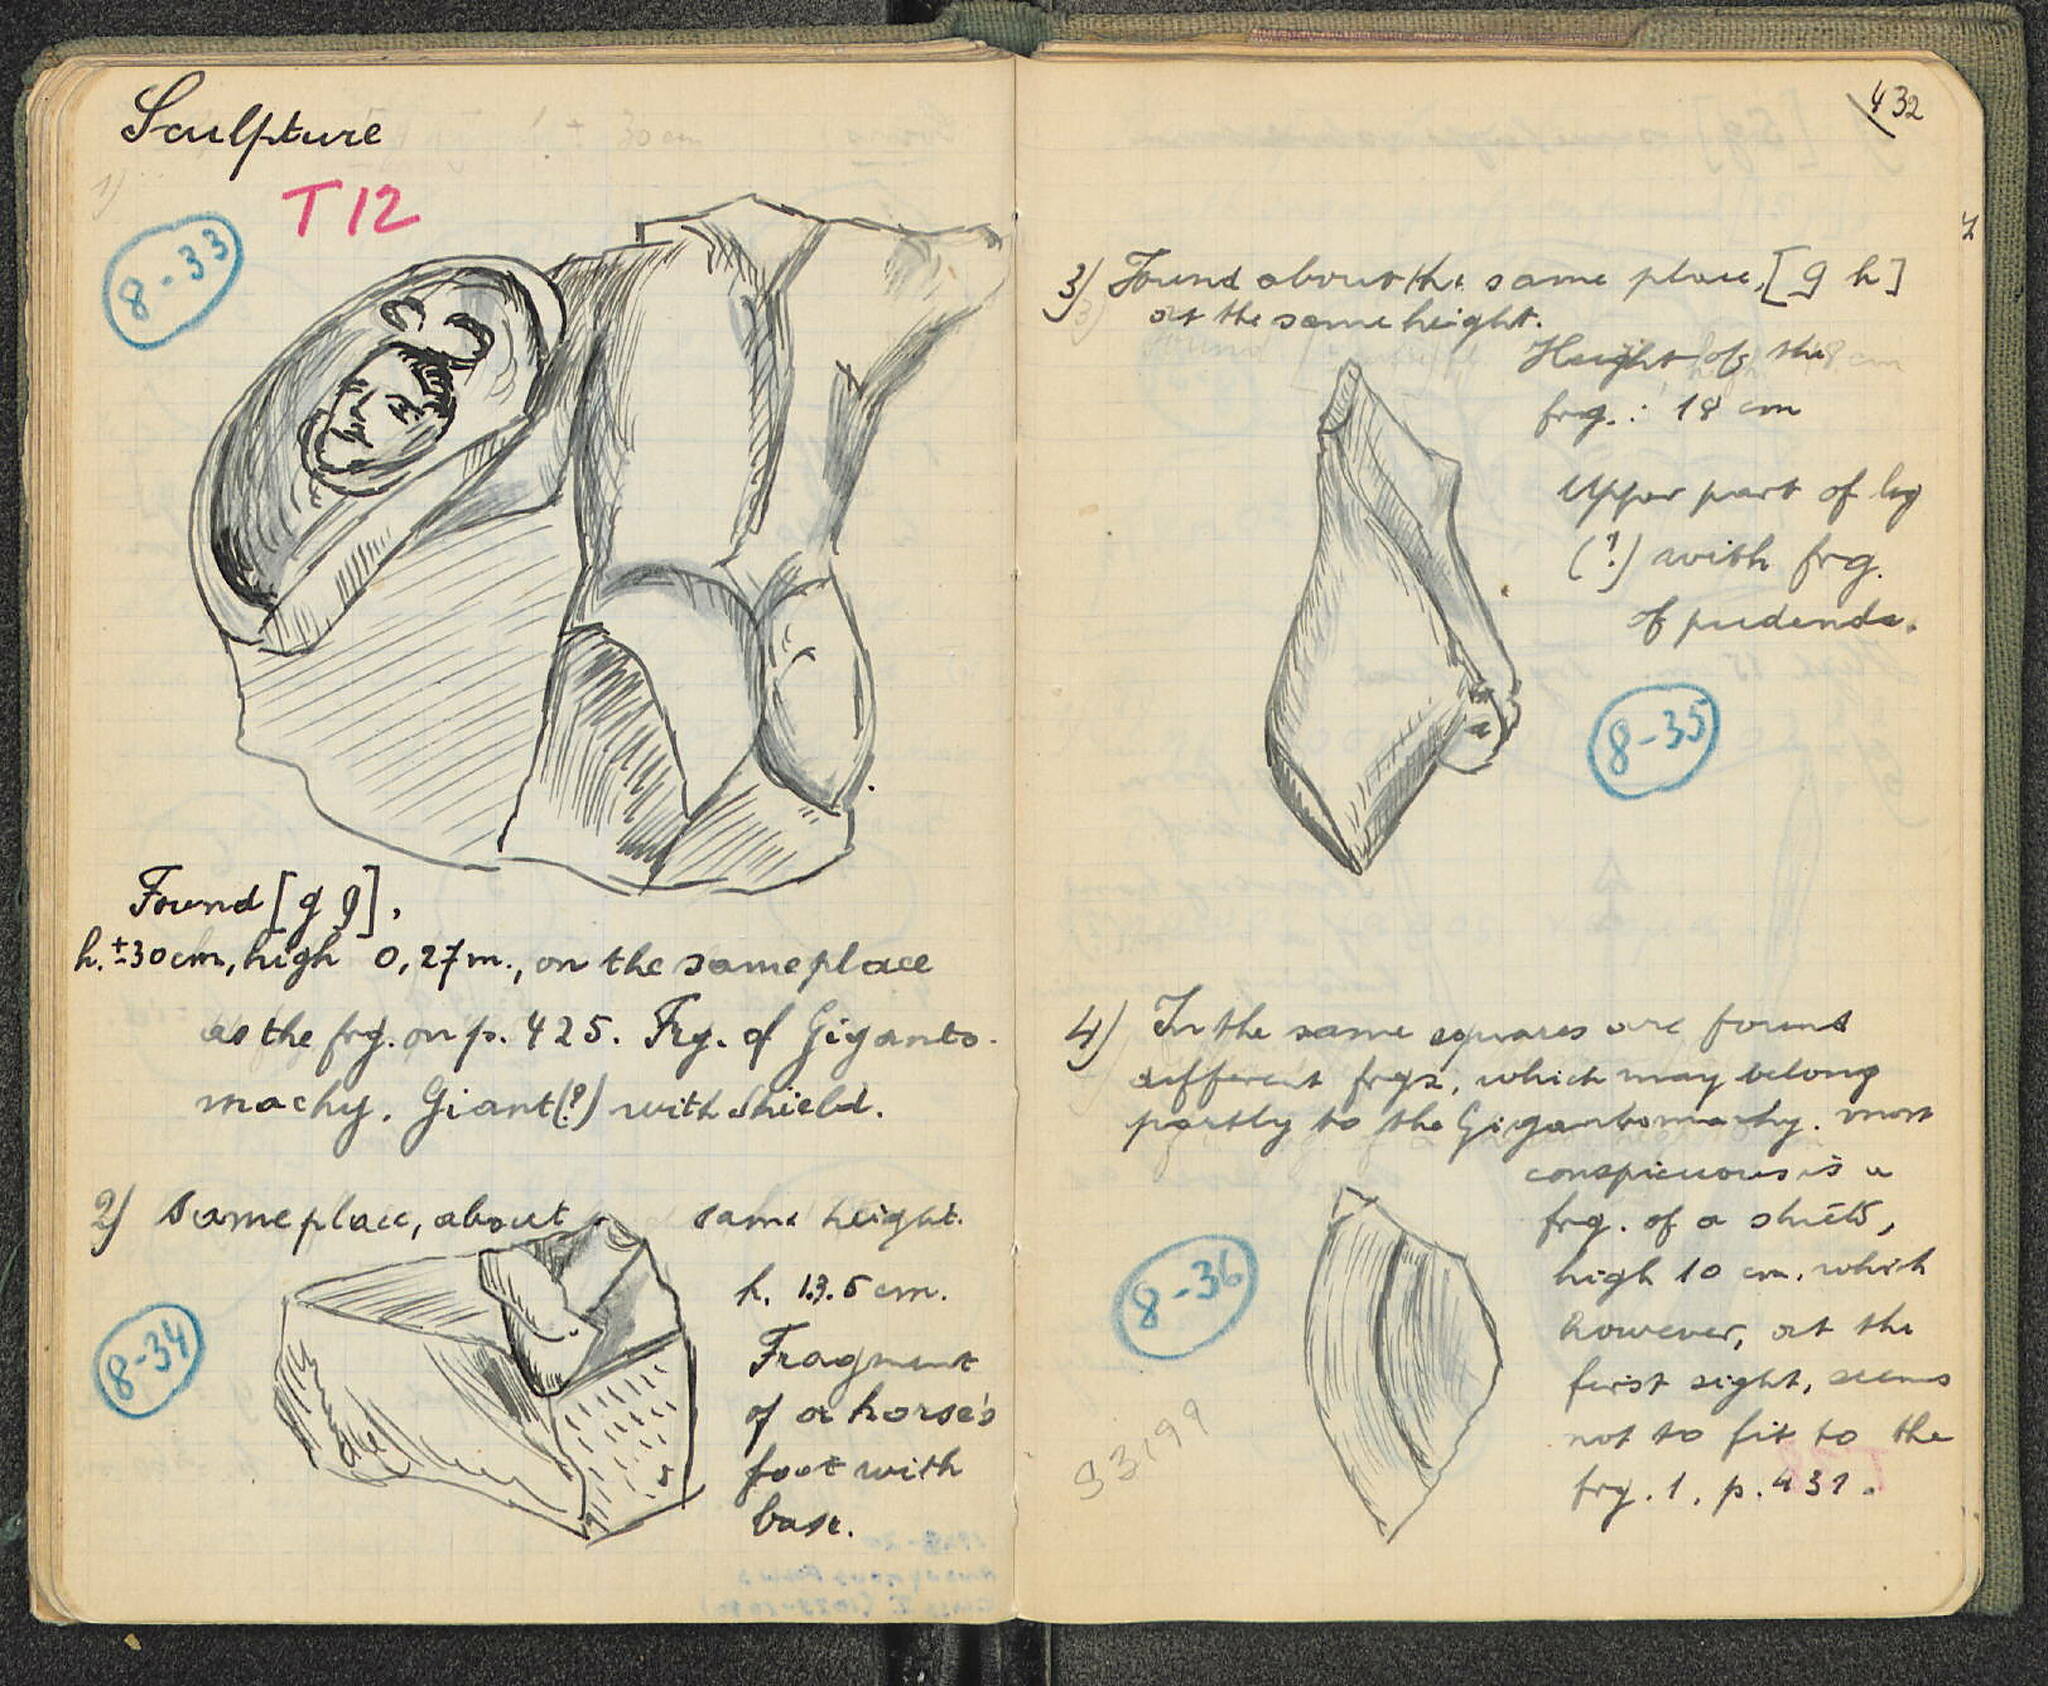 Sculpture
1)
T 12
8-33
Found [g g],
h. ± 30 cm, high 0,27 m., on the same place
as the frg. on p. 425. Frg. of Giganto-
machy. Giant (?) with shield.
2) Same place, about same height.
8-34
h. 13.5 cm.
Fragment
of a horse's
foot with
base.
432
3) Found about the same place, [g h]
at the same height.
Height of the
frg. : 18 cm
Upper part of leg
(?) with frg.
of pudenda.
8-35
4) In the same squares are found
different frgs, which may belong
partly to the Gigantomachy. most
conspicuous is a
frg. of a shield,
high 10 cm. which
however, at the
first sight, seems
not to fit to the
frg. 1, p. 431.
8-36
S3199